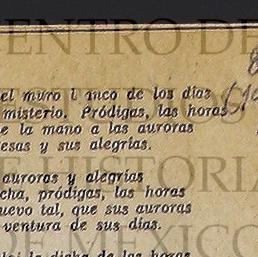 CENTRO DE
el muro l inco de los días
misterio. Pródigas, las horas
e la mano a las auroras
esas y sus alegrías.
auroras y alegrías
cha, pródigas, las horas
uevo tal, que sus auroras
ventura de sus días.
la dicha de las horas
HISTORIA
DE MEXICO